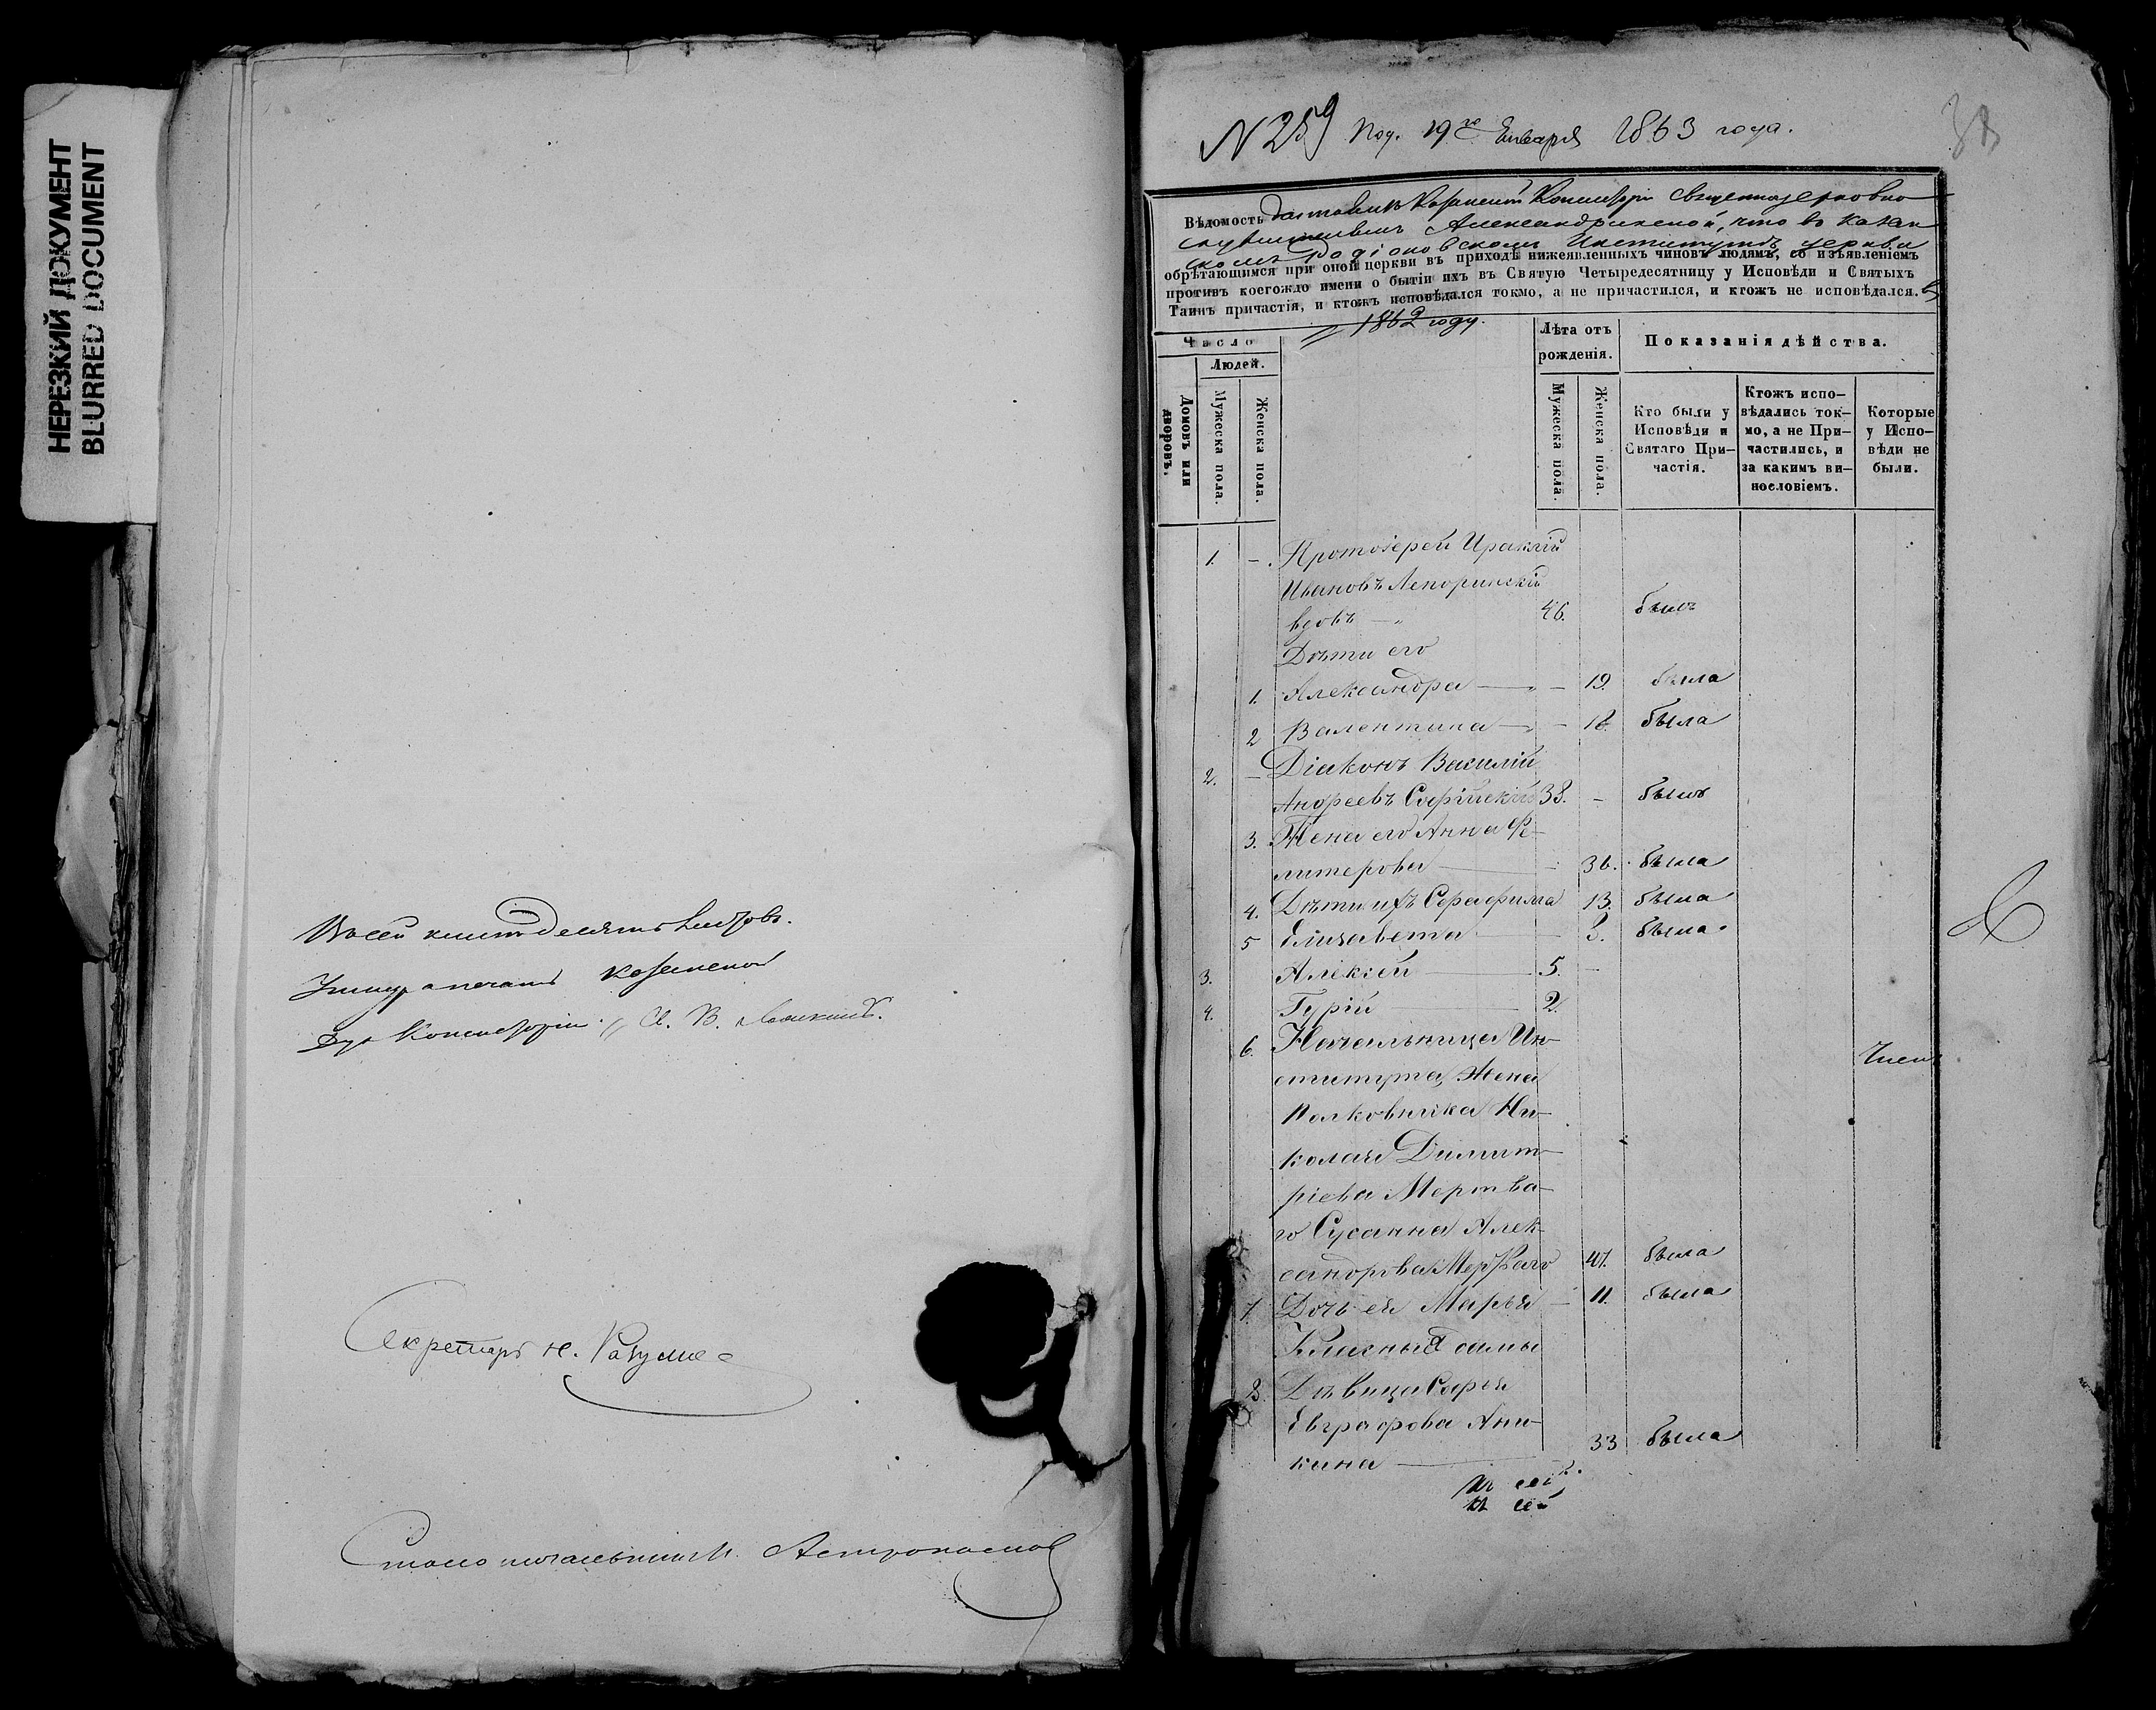 НЕРЕЗКИЙ ДОКУМЕНТ
BLURRED DOCUMENT
Въ сей книге десять листовъ.
Казанской
Дух. Консисторіи
Секретарь Н.
Столоначальникъ
N 259 Пол. 19го Января 1863 года.
Вѣдомость Казанской Консисторіи Священноцерковно
служителями Александринской, что въ Казан
скомъ Родіоновскомъ Институтѣ церкви
обрѣтающимся при оной церкви въ приходѣ нижеявленныхъ чиновъ людямъ, со изъявленіемъ
противъ коегождо имени о бытіи ихъ въ Святую Четыредесятницу у Исповѣди и Святыхъ
Таинъ причастія, и ктожъ исповѣдался токмо, а не причастился, и ктожъ не исповѣдался. въ
1862 году.
Число
Людей.
Домовъ или дворовъ.
Мужеска пола.
Женска пола.
Лѣта отъ рожденія.
Мужеска пола.
Женска пола.
Показанія дѣйства.
Кто были у Исповѣди и Святаго Причастія.
Ктожъ исповѣдались токмо, а не Причастились, и за какимъ винословіемъ.
Которые у Исповѣди не были.
1. - Протоіерей Ираклій
Ивановъ Лепоринскій
вдовъ - 46. былъ
Дѣти его
1. Александра - 19. была
2 Валентина - 18. была
2. - Діаконъ Василій
Андреевъ Софійскій 38. - былъ
3. Жена его Анна Фе-
литерова - 36. была
4. Дѣти ихъ Серафима 13. была
5 Елизавета - 8. была
3. Алексѣй - 5. -
4. Гурій - 2.
6. Начальница Ин-
ститута, Жена
Полковника Ни-
колая Димит-
ріева Мертва-
го Сусанна Алек-
сандрова Мертваго 47. была
7. Дочь ея Марья - 11. была
Класныя дамы
8. Дѣвица Софья
Евграфова Ани-
кина - 33 была